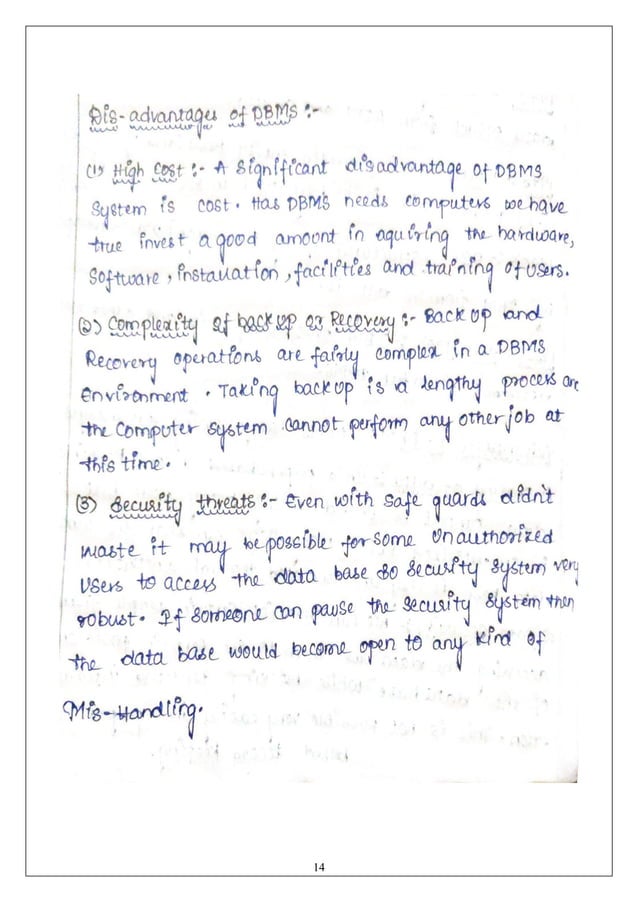 Dis-advantages of DBMS :-
(1) High Cost :- A Significant disadvantage of DBMS
System is cost. Has DBMS needs computers we have
true invest a good amount in aquiring the hardware,
Software, installation, facilities and training of users.
(2) Complexity of back up or Recovery :- Back up and
Recovery operations are fairly complex in a DBMS
Environment. Taking back up is a lengthy process are
the Computer system cannot perform any other job at
this time.
(3) Security threats :- Even with safe guards didn't
waste it may be possible for some Unauthorized
Users to access the data base so security system very
robust. If someone can pause the security system then
the data base would become open to any kind of
Mis-Handling.
14